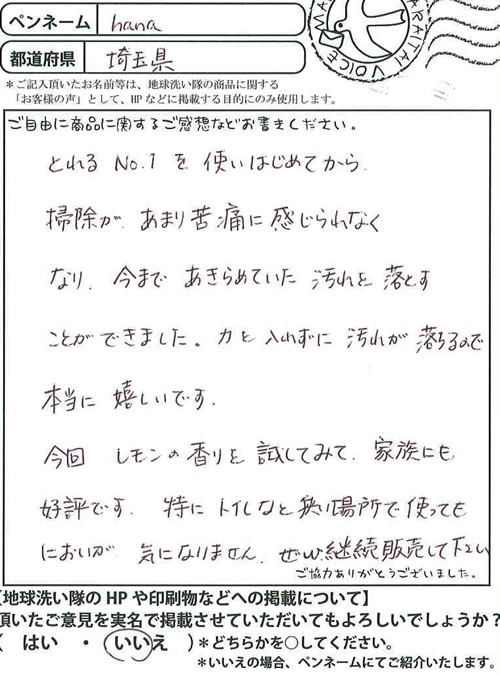 ペンネーム hana
都道府県 埼玉県
ARAITAI VOICE
*ご記入頂いたお名前等は、地球洗い隊の商品に関する
「お客様の声」として、HPなどに掲載する目的にのみ使用します。
ご自由に商品に関するご感想などお書きください。
とれるNo.1を使いはじめてから、
掃除が、あまり苦痛に感じられなく
なり、今まであきらめていた汚れを落とす
ことができました。力を入れずに汚れが落ちるので
本当に嬉しいです。
今回レモンの香りを試してみて、家族にも
好評です。特にトイレなど狭い場所で使っても
においが気になりません。ぜひ継続販売して下さい
ご協力ありがとうございました。
【地球洗い隊のHPや印刷物などへの掲載について】
頂いたご意見を実名で掲載させていただいてもよろしいでしょうか?
( はい ・ いいえ )*どちらかを○してください。
*いいえの場合、ペンネームにてご紹介いたします。